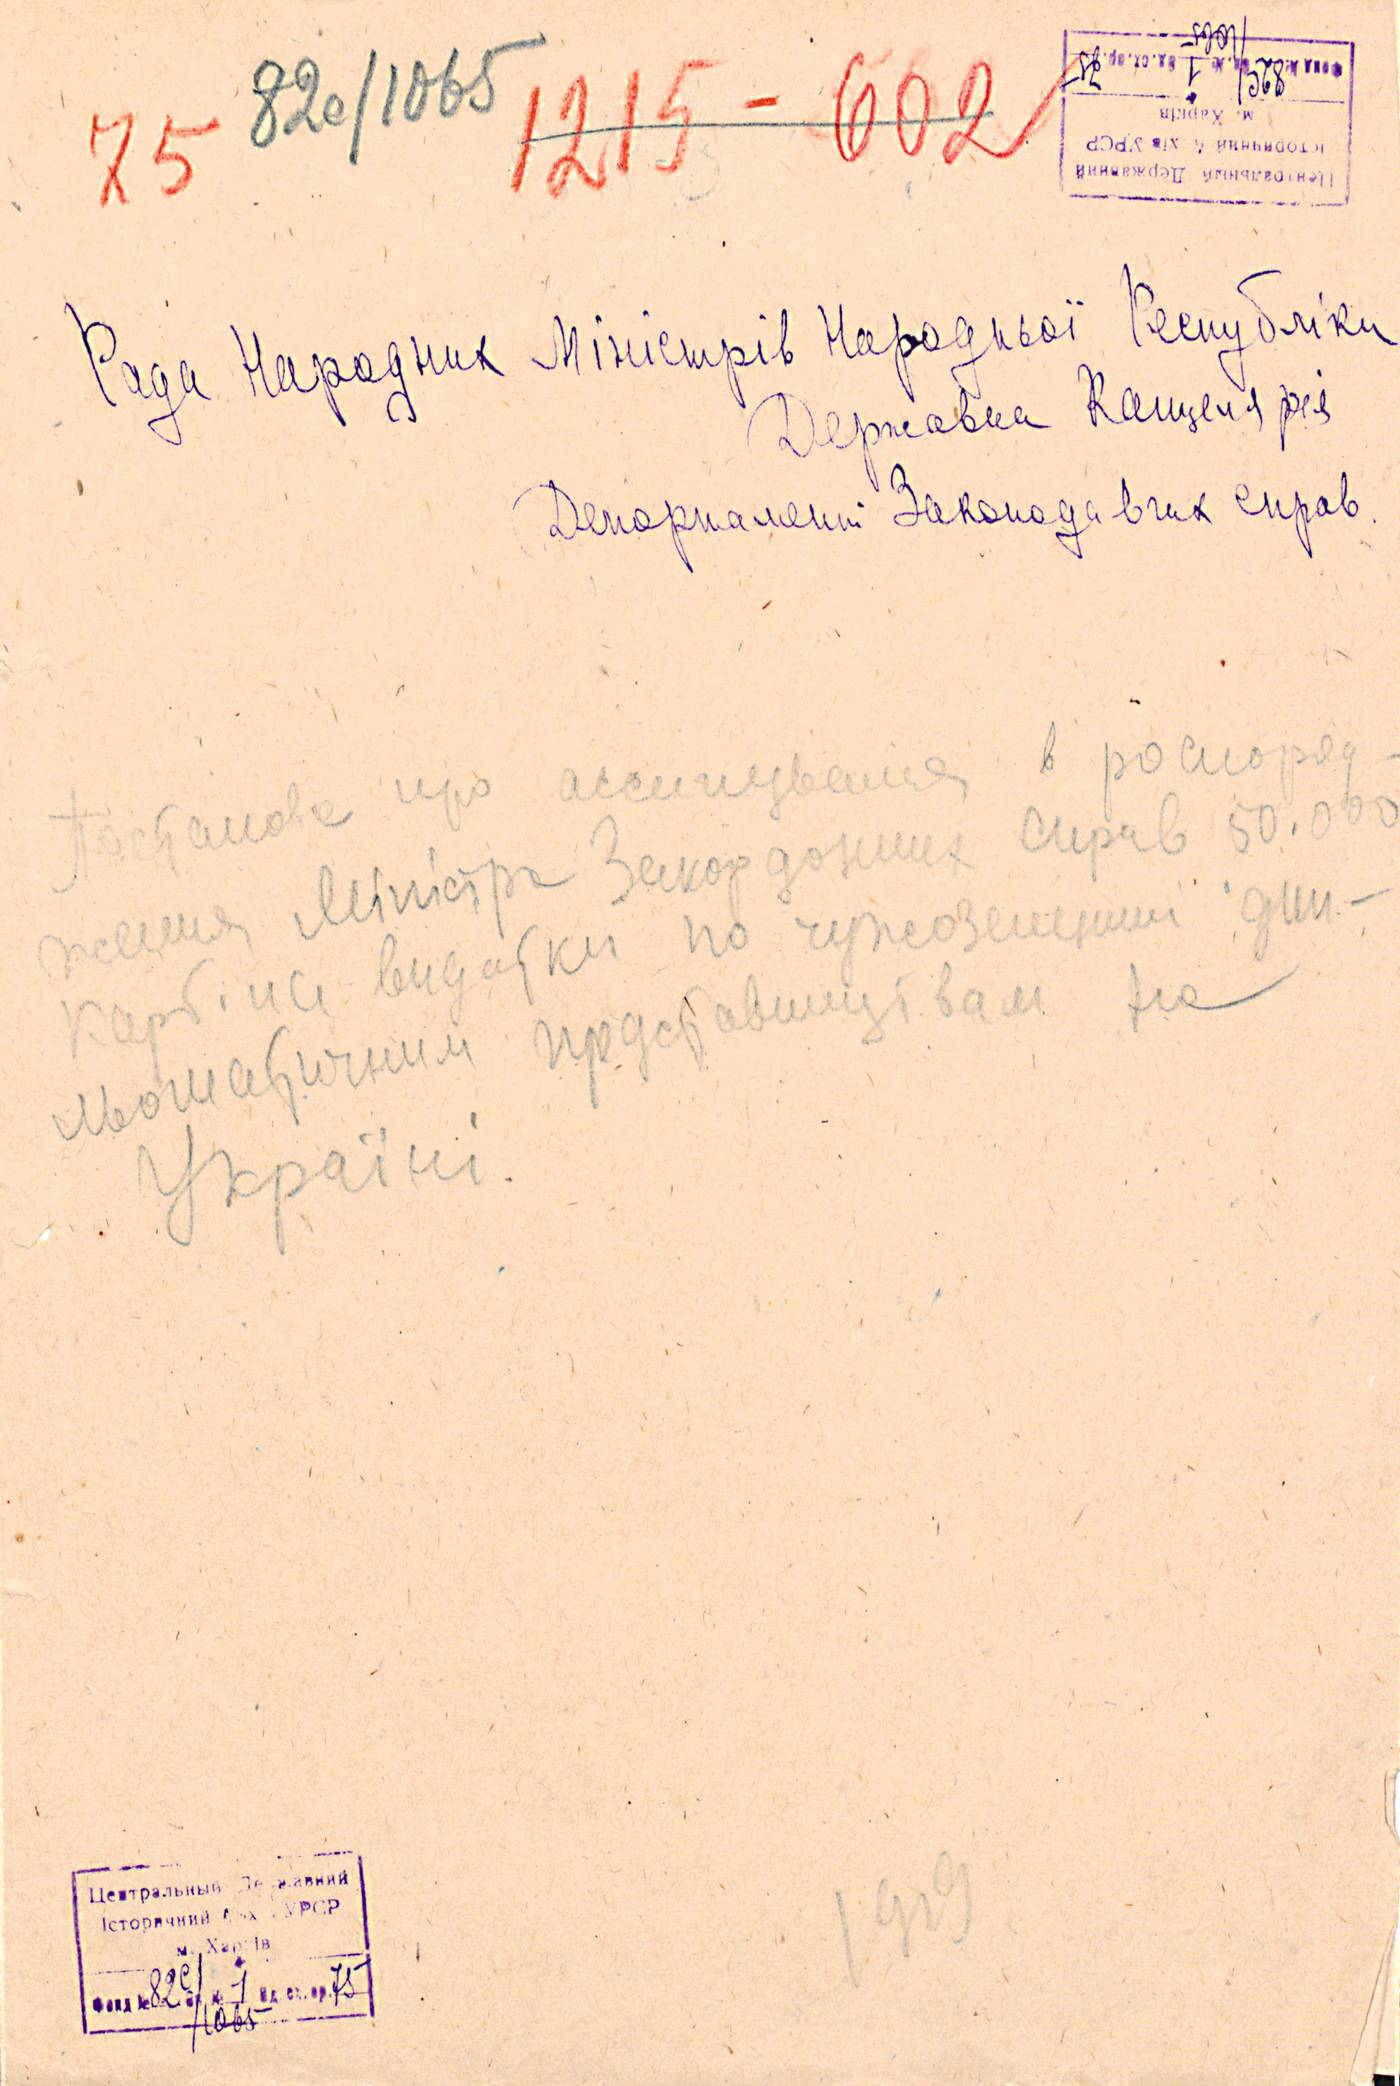 75 82с/1065 1215-602
Центральный Державний
Історичний Архів УРСР
м. Харків
Фонд № 82с/1065 оп. № 1 од. сх. ар. 75
Рада Народних Міністрів Народньої Республіки
Державна Канцелярія
Департамент Законодавчих справ.
Постанова про ассигнування в розпоряд-
ження Міністра Закордонних справ 50.000
карб. на видатки по чужоземним дип-
льоматичним представництвам на
Україні.
1919
Центральный Державний
Історичний Архів УРСР
м. Харків
Фонд № 82с/1065 оп. № 1 од. сх. ар. 75